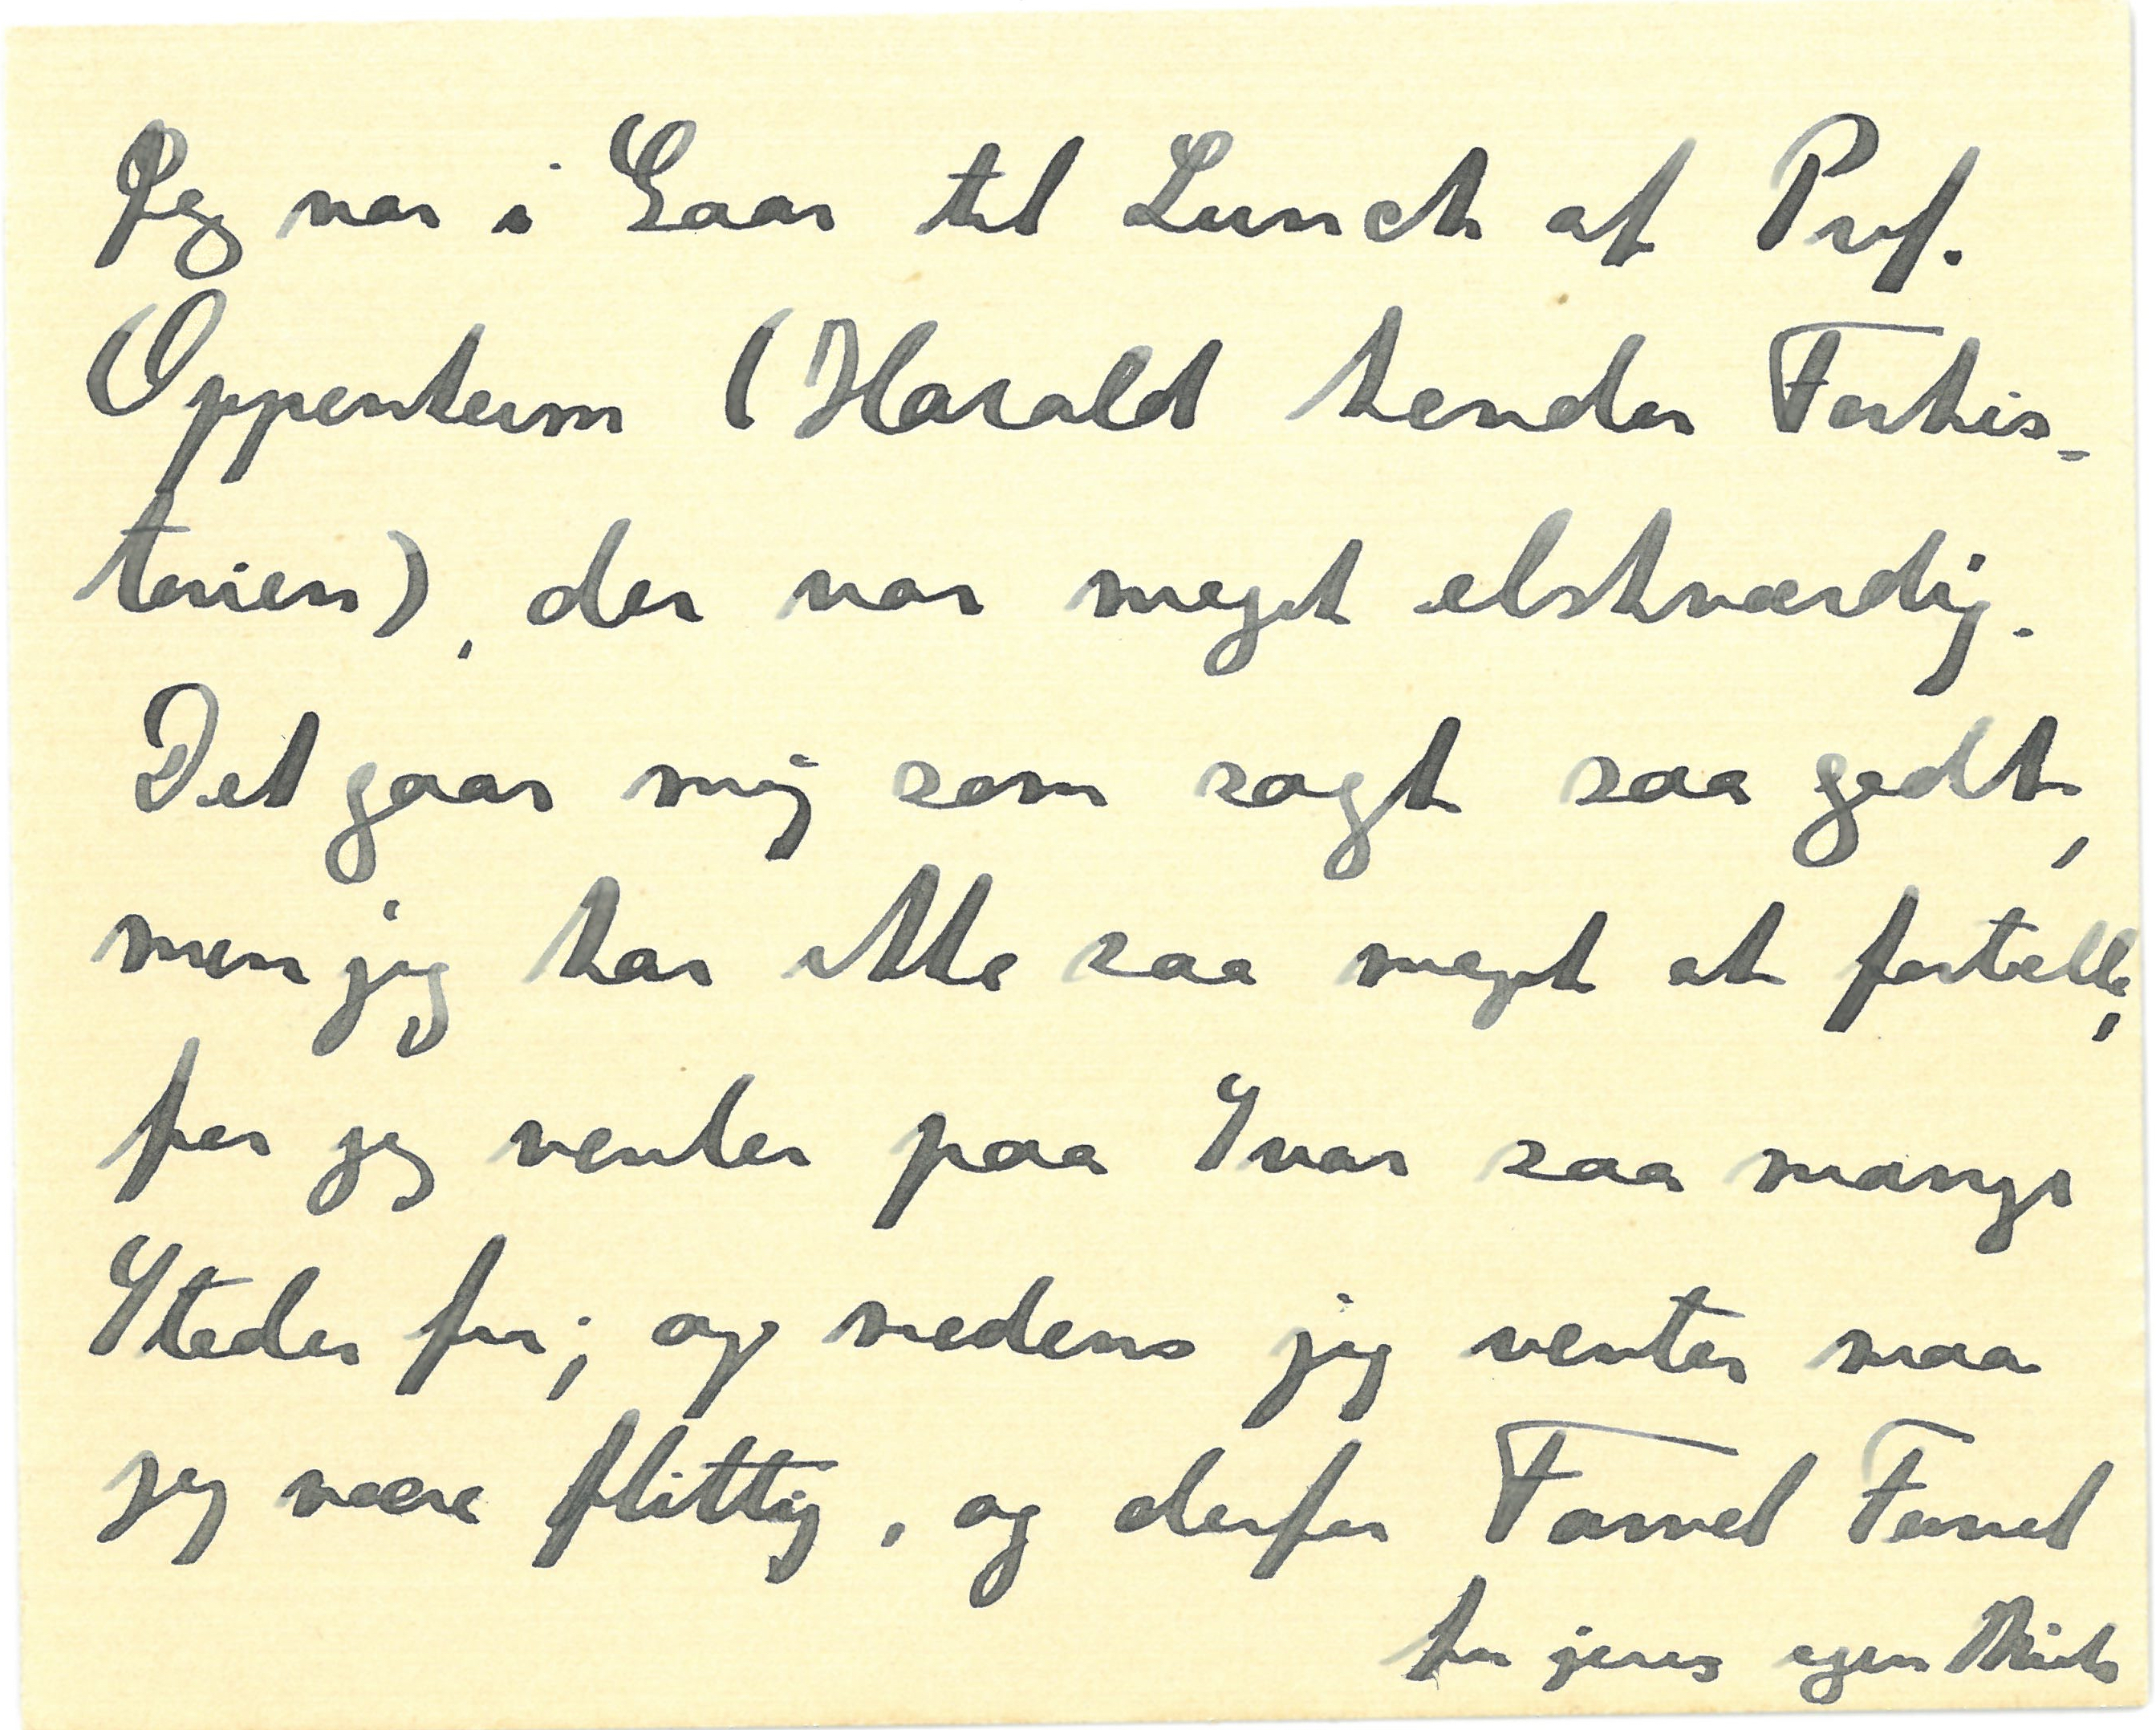 Jeg var i Gaar til Lunch at Prof.
Oppenheim (Harald kender Forhis-
torien), der var meget elskværdig.
Det gaar mig som sagt saa godt,
men jeg har ikke saa meget at fortælle,
for jeg venter paa Svar saa mange
Steder fra; og medens jeg venter maa
jeg være flittig, og derfor Farvel Farvel
fra jeres egen Niels